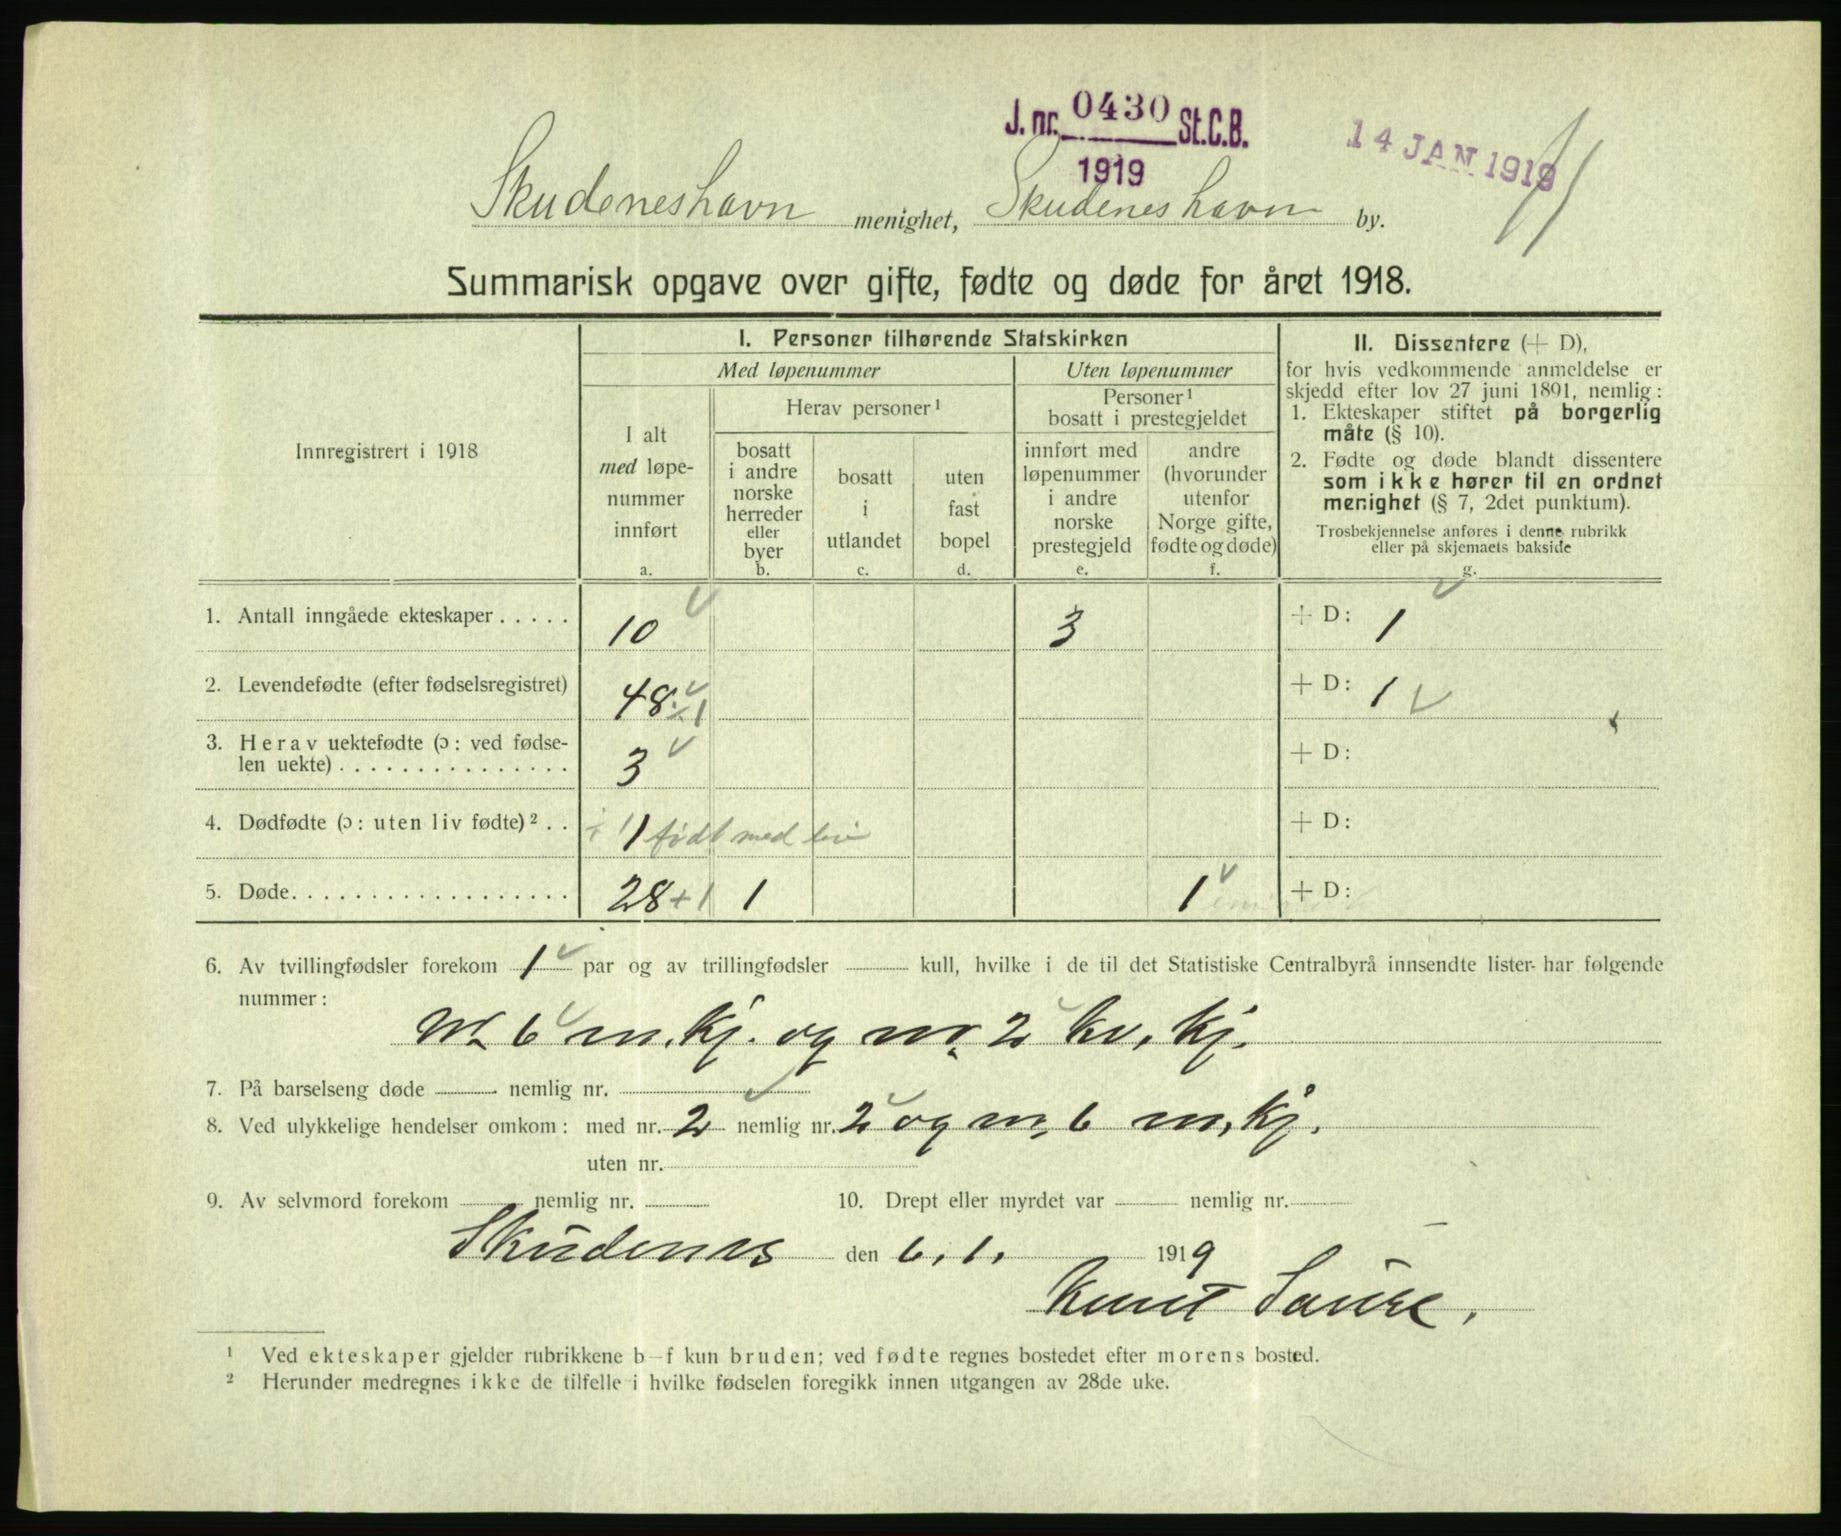 J. nr. 0430 St.C.B.
1919
14 JAN 1919
Skudeneshavn menighet, Skudeneshavn by.
Summarisk opgave over gifte, fødte og døde for året 1918.
Innregistrert i 1918
I. Personer tilhørende Statskirken
Med løpenummer
Uten løpenummer
I alt
med løpe-
nummer
innført
a.
Herav personer¹
bosatt
i andre
norske
herreder
eller
byer
b.
bosatt
i
utlandet
c.
uten
fast
bopel
d.
Personer¹
bosatt i prestegjeldet
innført med
løpenummer
i andre
norske
prestegjeld
e.
andre
(hvorunder
utenfor
Norge gifte,
fødte og døde)
f.
II. Dissentere (+ D),
for hvis vedkommende anmeldelse er
skjedd efter lov 27 juni 1891, nemlig:
1. Ekteskaper stiftet på borgerlig
måte (§ 10).
2. Fødte og døde blandt dissentere
som ikke hører til en ordnet
menighet (§ 7, 2det punktum).
Trosbekjennelse anføres i denne rubrikk
eller på skjemaets bakside
g.
1. Antall inngåede ekteskaper . . . . . 10 3 + D: 1
2. Levendefødte (efter fødselsregistret) 48 + 1 + D: 1
3. Herav uektefødte (ɔ: ved fødse-
len uekte) . . . . . . . . . . . . . . . 3 + D:
4. Dødfødte (ɔ: uten liv fødte)² . . 1 født med liv + D:
5. Døde. . . . . . . . . . . . . . . . . . 28 + 1 1 1 + D:
6. Av tvillingfødsler forekom 1 par og av trillingfødsler kull, hvilke i de til det Statistiske Centralbyrå innsendte lister har følgende
nummer:
nr. 6 m. kj. og nr. 2 kv. kj.
7. På barselseng døde nemlig nr.
8. Ved ulykkelige hendelser omkom: med nr. 2 nemlig nr. 2 og nr. 6 m. kj.
uten nr.
9. Av selvmord forekom nemlig nr. 10. Drept eller myrdet var nemlig nr.
Skudenes den 6. 1. 1919
¹ Ved ekteskaper gjelder rubrikkene b–f kun bruden; ved fødte regnes bostedet efter morens bosted.
² Herunder medregnes ikke de tilfelle i hvilke fødselen foregikk innen utgangen av 28de uke.